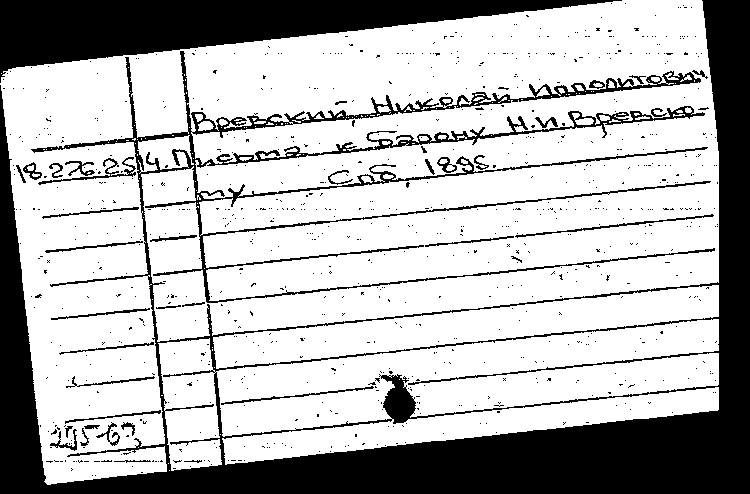 Вревский, Николай Ипполитович
18.276.2.514. Письма к барону Н.И. Вревско-
му. Спб, 1896.
295-63